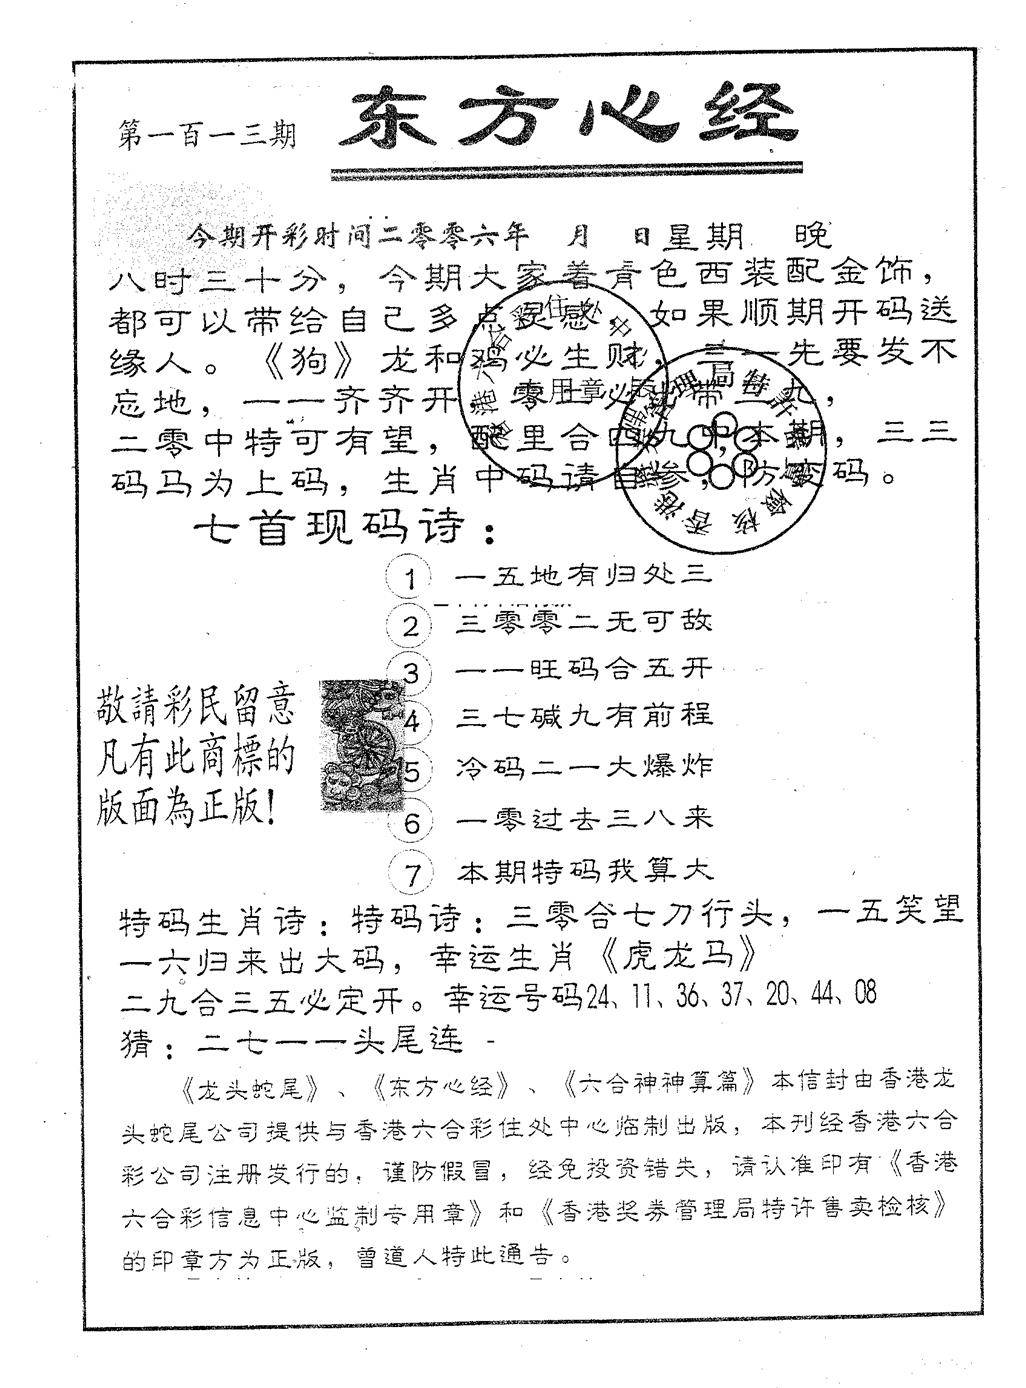 第一百一十三期
东方心经
今期开彩时间二零零六年 月 日星期 晚
八时三十分，今期大家着青色西装配金饰，
都可以带给自己多点灵感，如果顺期开码送
缘人。《狗》龙和鸡必生财，三一先要发不
忘地，一一齐齐开，零三必出带三九，
二零中特可有望，配里合四九中本期，三三
码马为上码，生肖中码请自参，防变码。
七首现码诗：
1 一五地有归处三
2 三零零二无可敌
3 一一旺码合五开
4 三七碱九有前程
5 冷码二一大爆炸
6 一零过去三八来
7 本期特码我算大
敬請彩民留意
凡有此商標的
版面為正版！
特码生肖诗：特码诗：三零合七刀行头，一五笑望
一六归来出大码，幸运生肖《虎龙马》
二九合三五必定开。幸运号码24、11、36、37、20、44、08
猜：二七一一头尾连 -
《龙头蛇尾》、《东方心经》、《六合神神算篇》本信封由香港龙
头蛇尾公司提供与香港六合彩住处中心临制出版，本刊经香港六合
彩公司注册发行的，谨防假冒，经免投资错失，请认准印有《香港
六合彩信息中心监制专用章》和《香港奖券管理局特许售卖检核》
的印章方为正版，曾道人特此通告。